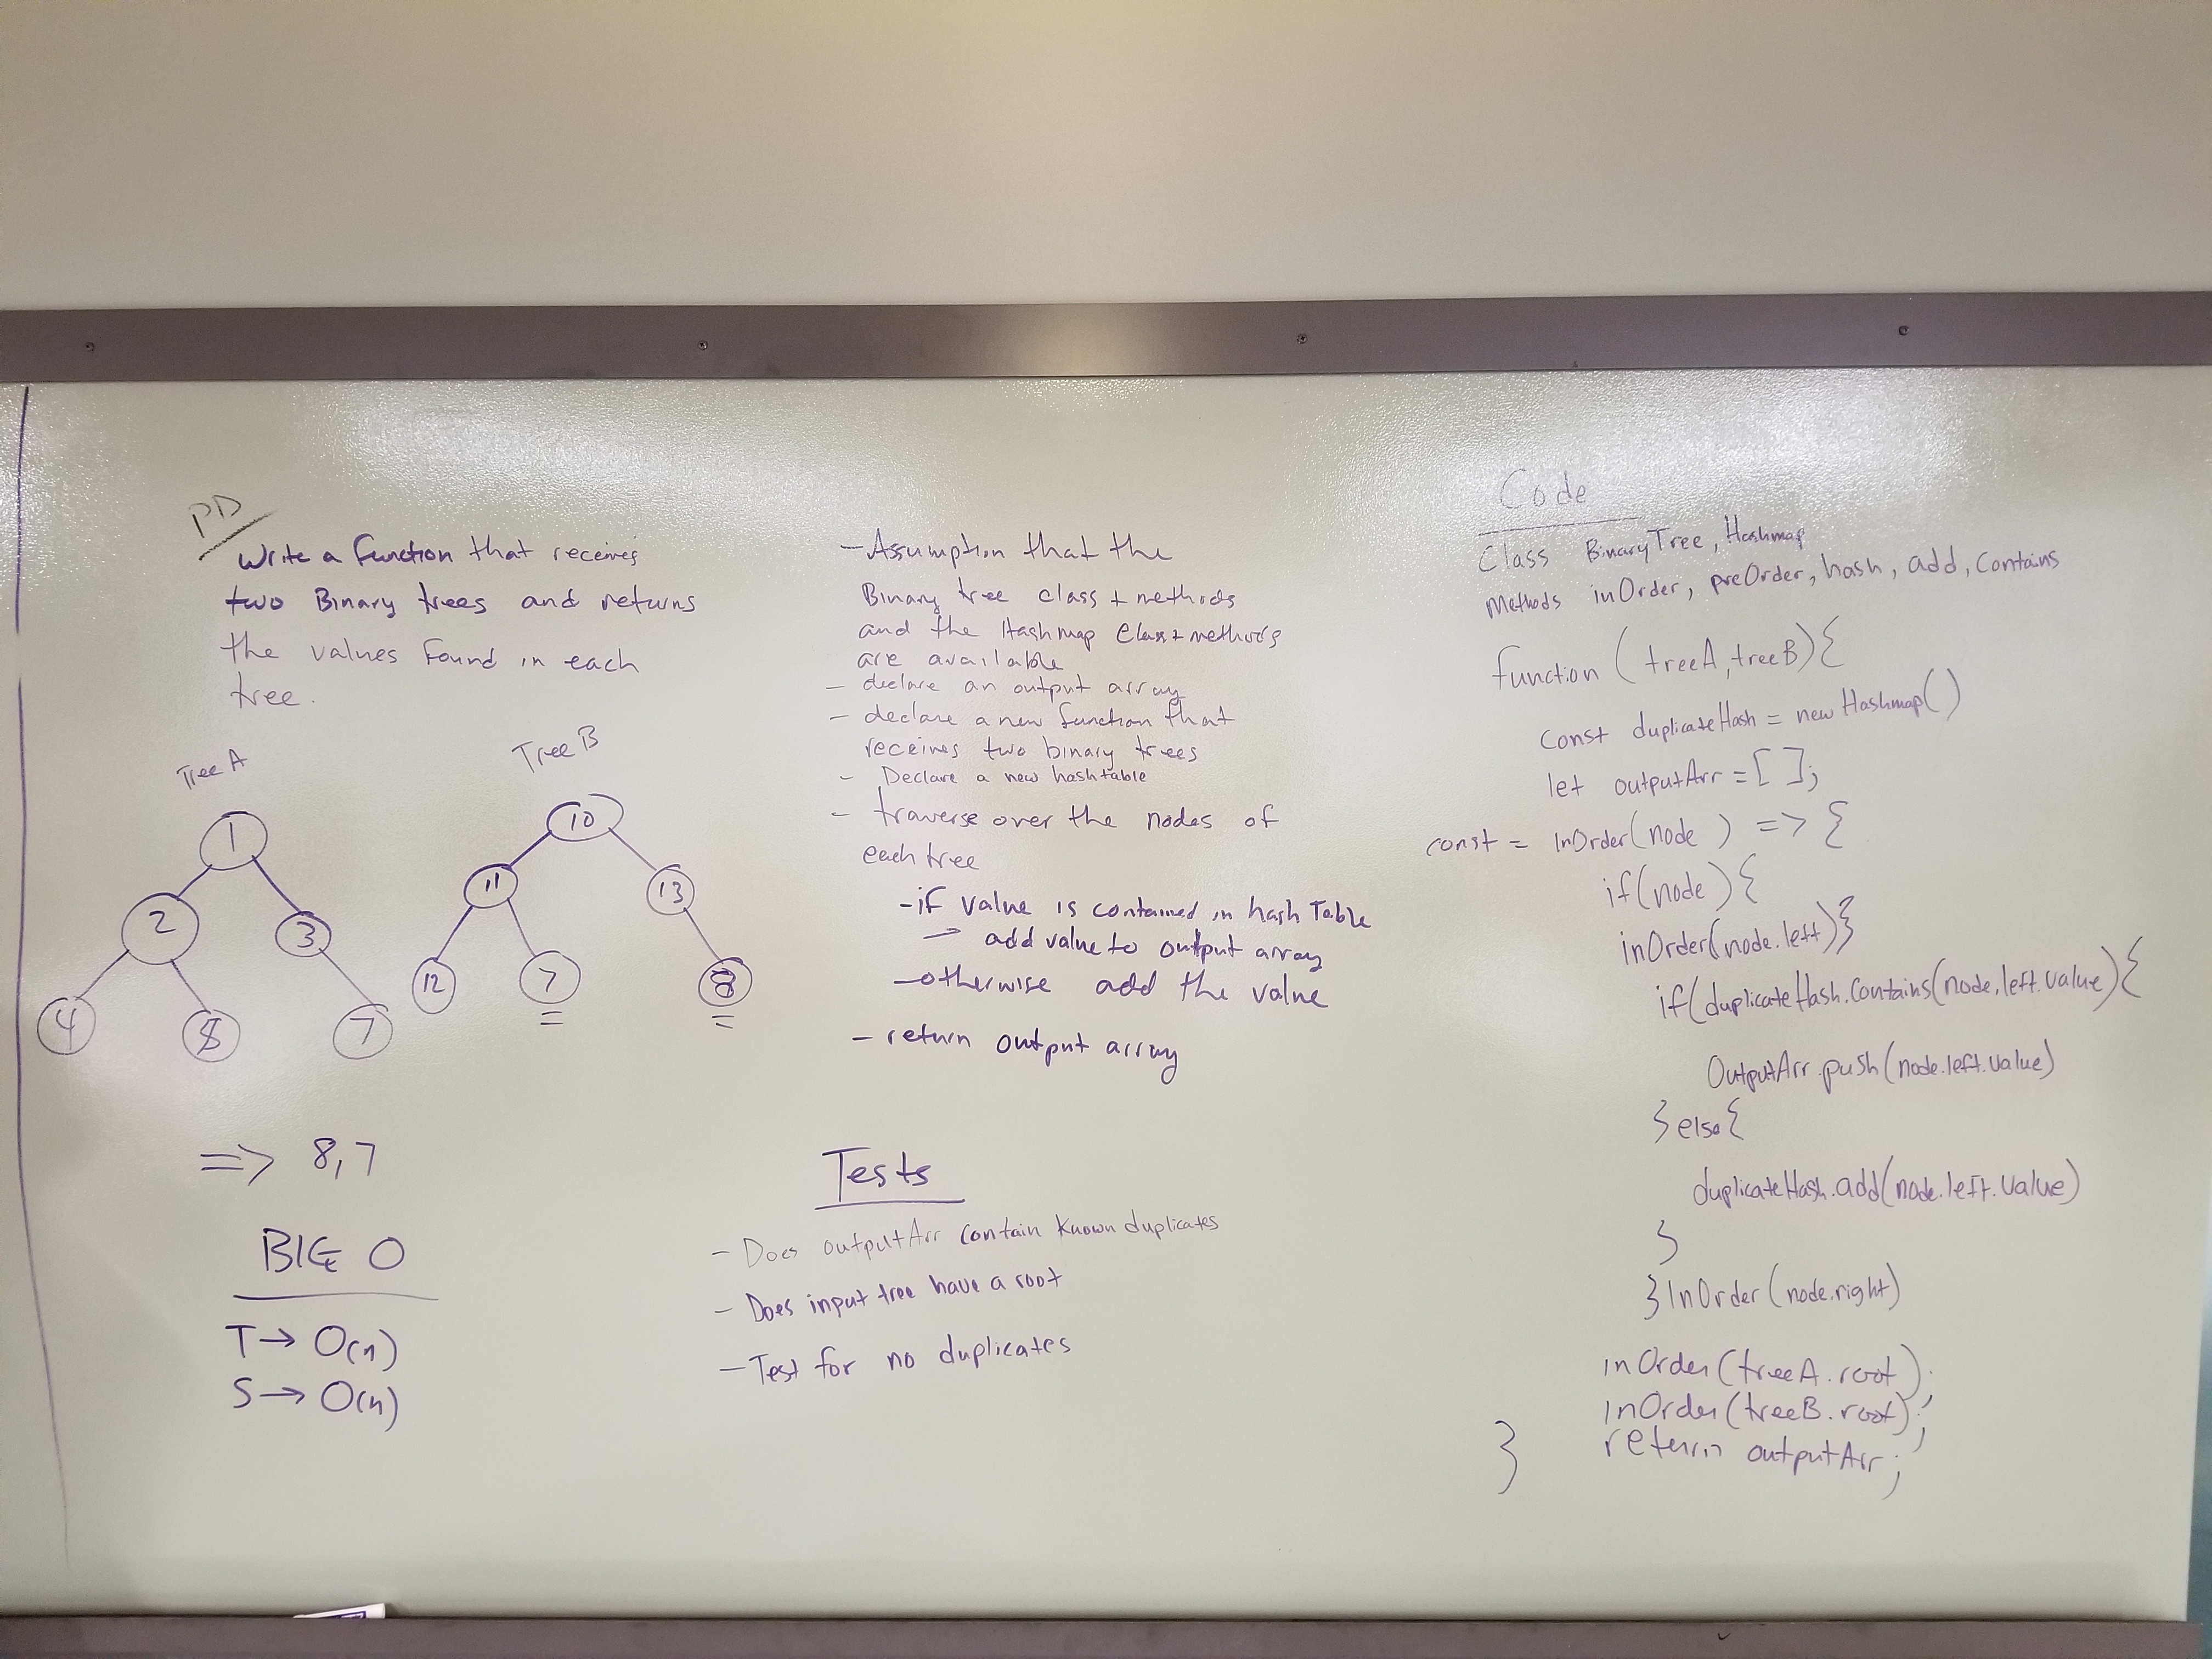 PD
Write a function that receives
two Binary trees and returns
the values found in each
tree.
Tree A
1
2
3
4
7
Tree B
10
11
13
12
7
8
=> 8,7
BIG O
T → O(n)
S → O(n)
- Assumption that the
Binary tree class + methods
and the Hashmap Class + methods
are available
- declare an output array
- declare a new function that
receives two binary trees
- Declare a new hashtable
- traverse over the nodes of
each tree
- if value is contained in hash Table
→ add value to output array
- otherwise add the value
- return output array
Tests
- Does outputArr contain known duplicates
- Does input tree have a root
- Test for no duplicates
Code
Class BinaryTree, Hashmap
Methods inOrder, preOrder, hash, add, Contains
function (treeA, treeB){
const duplicateHash = new Hashmap()
let outputArr = [ ];
const = inOrder(node ) => {
if(node){
inOrder(node.left)}
if(duplicateHash.contains(node.left.value){
OutputArr.push(node.left.value)
} else {
duplicateHash.add(node.left.value)
}
} InOrder(node.right)
inOrder(treeA.root);
inOrder(treeB.root);
return outputArr;
}